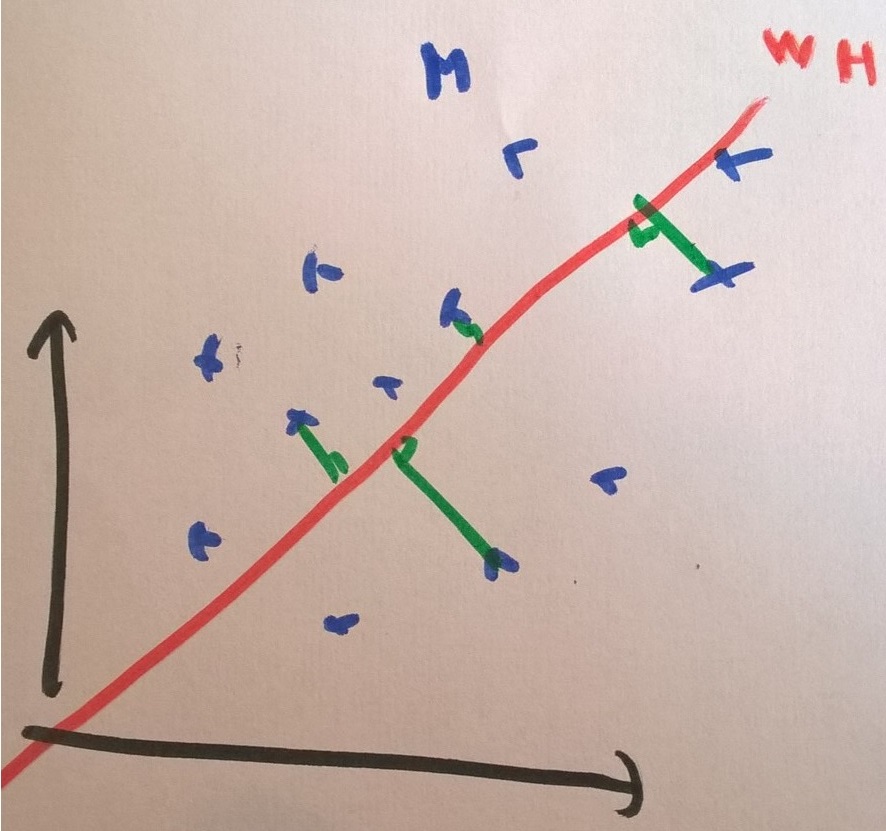 M
W H